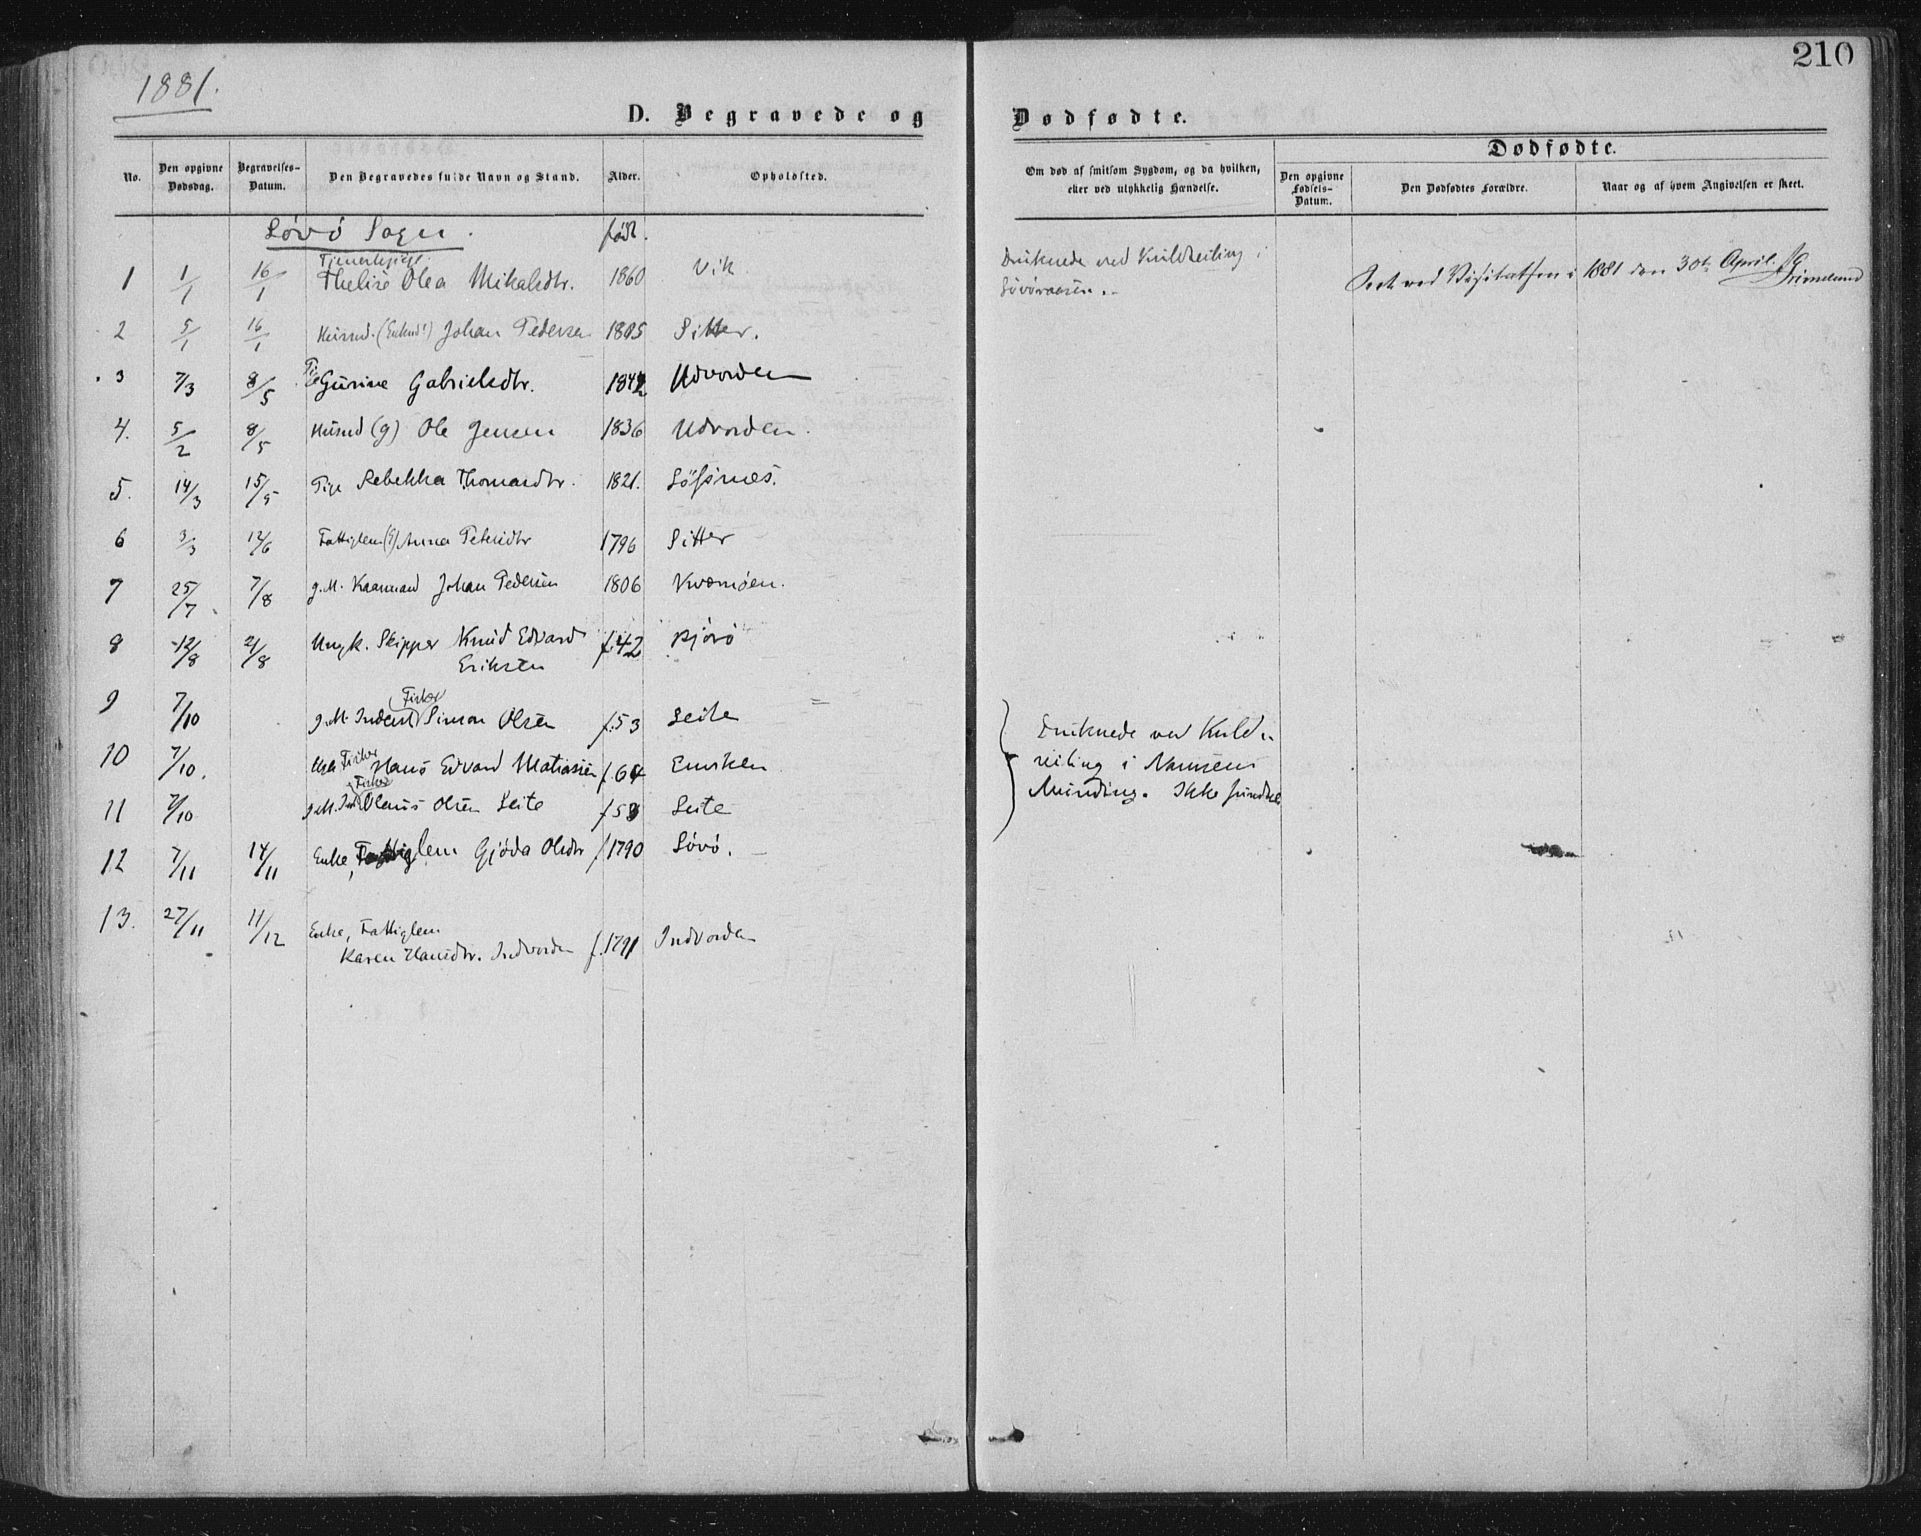 210
1881.
D. Begravede og Dødfødte.
Dødfødte.
No. Den opgivne Dødsdag. Begravelses-Datum. Den Begravedes fulde Navn og Stand. Alder. Opholdsted. Om død af smitsom Sygdom, og da hvilken, eller ved ulykkelig Hændelse. Den opgivne Fødsels-Datum. Den Dødfødtes Forældre. Naar og af hvem Angivelsen er skeet.
Løvø Sogn. født.
1 1/1 16/1 Olea Mikalsdtr. 1860 Vik Druknede ved Kuldseiling i
Seet ved Visitatsen i 1881 den 30te April.
2 5/1 16/1 Husmd. Johan Pedersen 1805 Sitter.
3 7/3 8/5 Pige Gurine Gabrielsdtr. 1842 Udvorden
4. 5/2 8/5 Husmd (g) Ole Jensen 1836 Udvorden.
5. 14/3 15/5 Pige Rebekka Thomasdtr. 1821. Løfsnes.
6 3/3 12/6 Fattiglem Anna Petersdtr 1796 Sitter
7 25/7 7/8 g.M. Kaarmand Johan Pedersen 1806 Kvæmøen.
8 12/8 21/8 Ungk. Skipper Knud Edvard f.42 Bjørø
Eriksen
9 7/10 g.M. Inderst Fisker Simon Olsen f.53 Seite
10 7/10. Fisker Hans Edvard Matiasen f.64
11 7/10 g.M. Ind. Fisker Olaus Olsen Seite f.53 Seite
Druknede ved Kuld-
seiling i Namsens
Munding. Ikke fundne
12 7/11 14/11 Enke, Fattiglem Gjøda Olsdtr f.1790 Løvø.
13. 27/11 11/12 Enke, Fattiglem
Karen Hansdtr. Indvorden f.1791 Indvorden